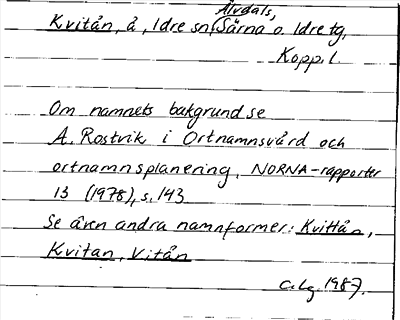 Älvdals,
Kvitån, å, Idre sn, (Särna o. Idre tg,
Kopp. l.
Om namnets bakgrund se
A. Rostvik i Ortnamnsvård och
ortnamnsplanering, NORNA-rapporter
13 (1978), s. 143
Se även andra namnformer: Kvittån,
Kvitan, Vitån
1987.